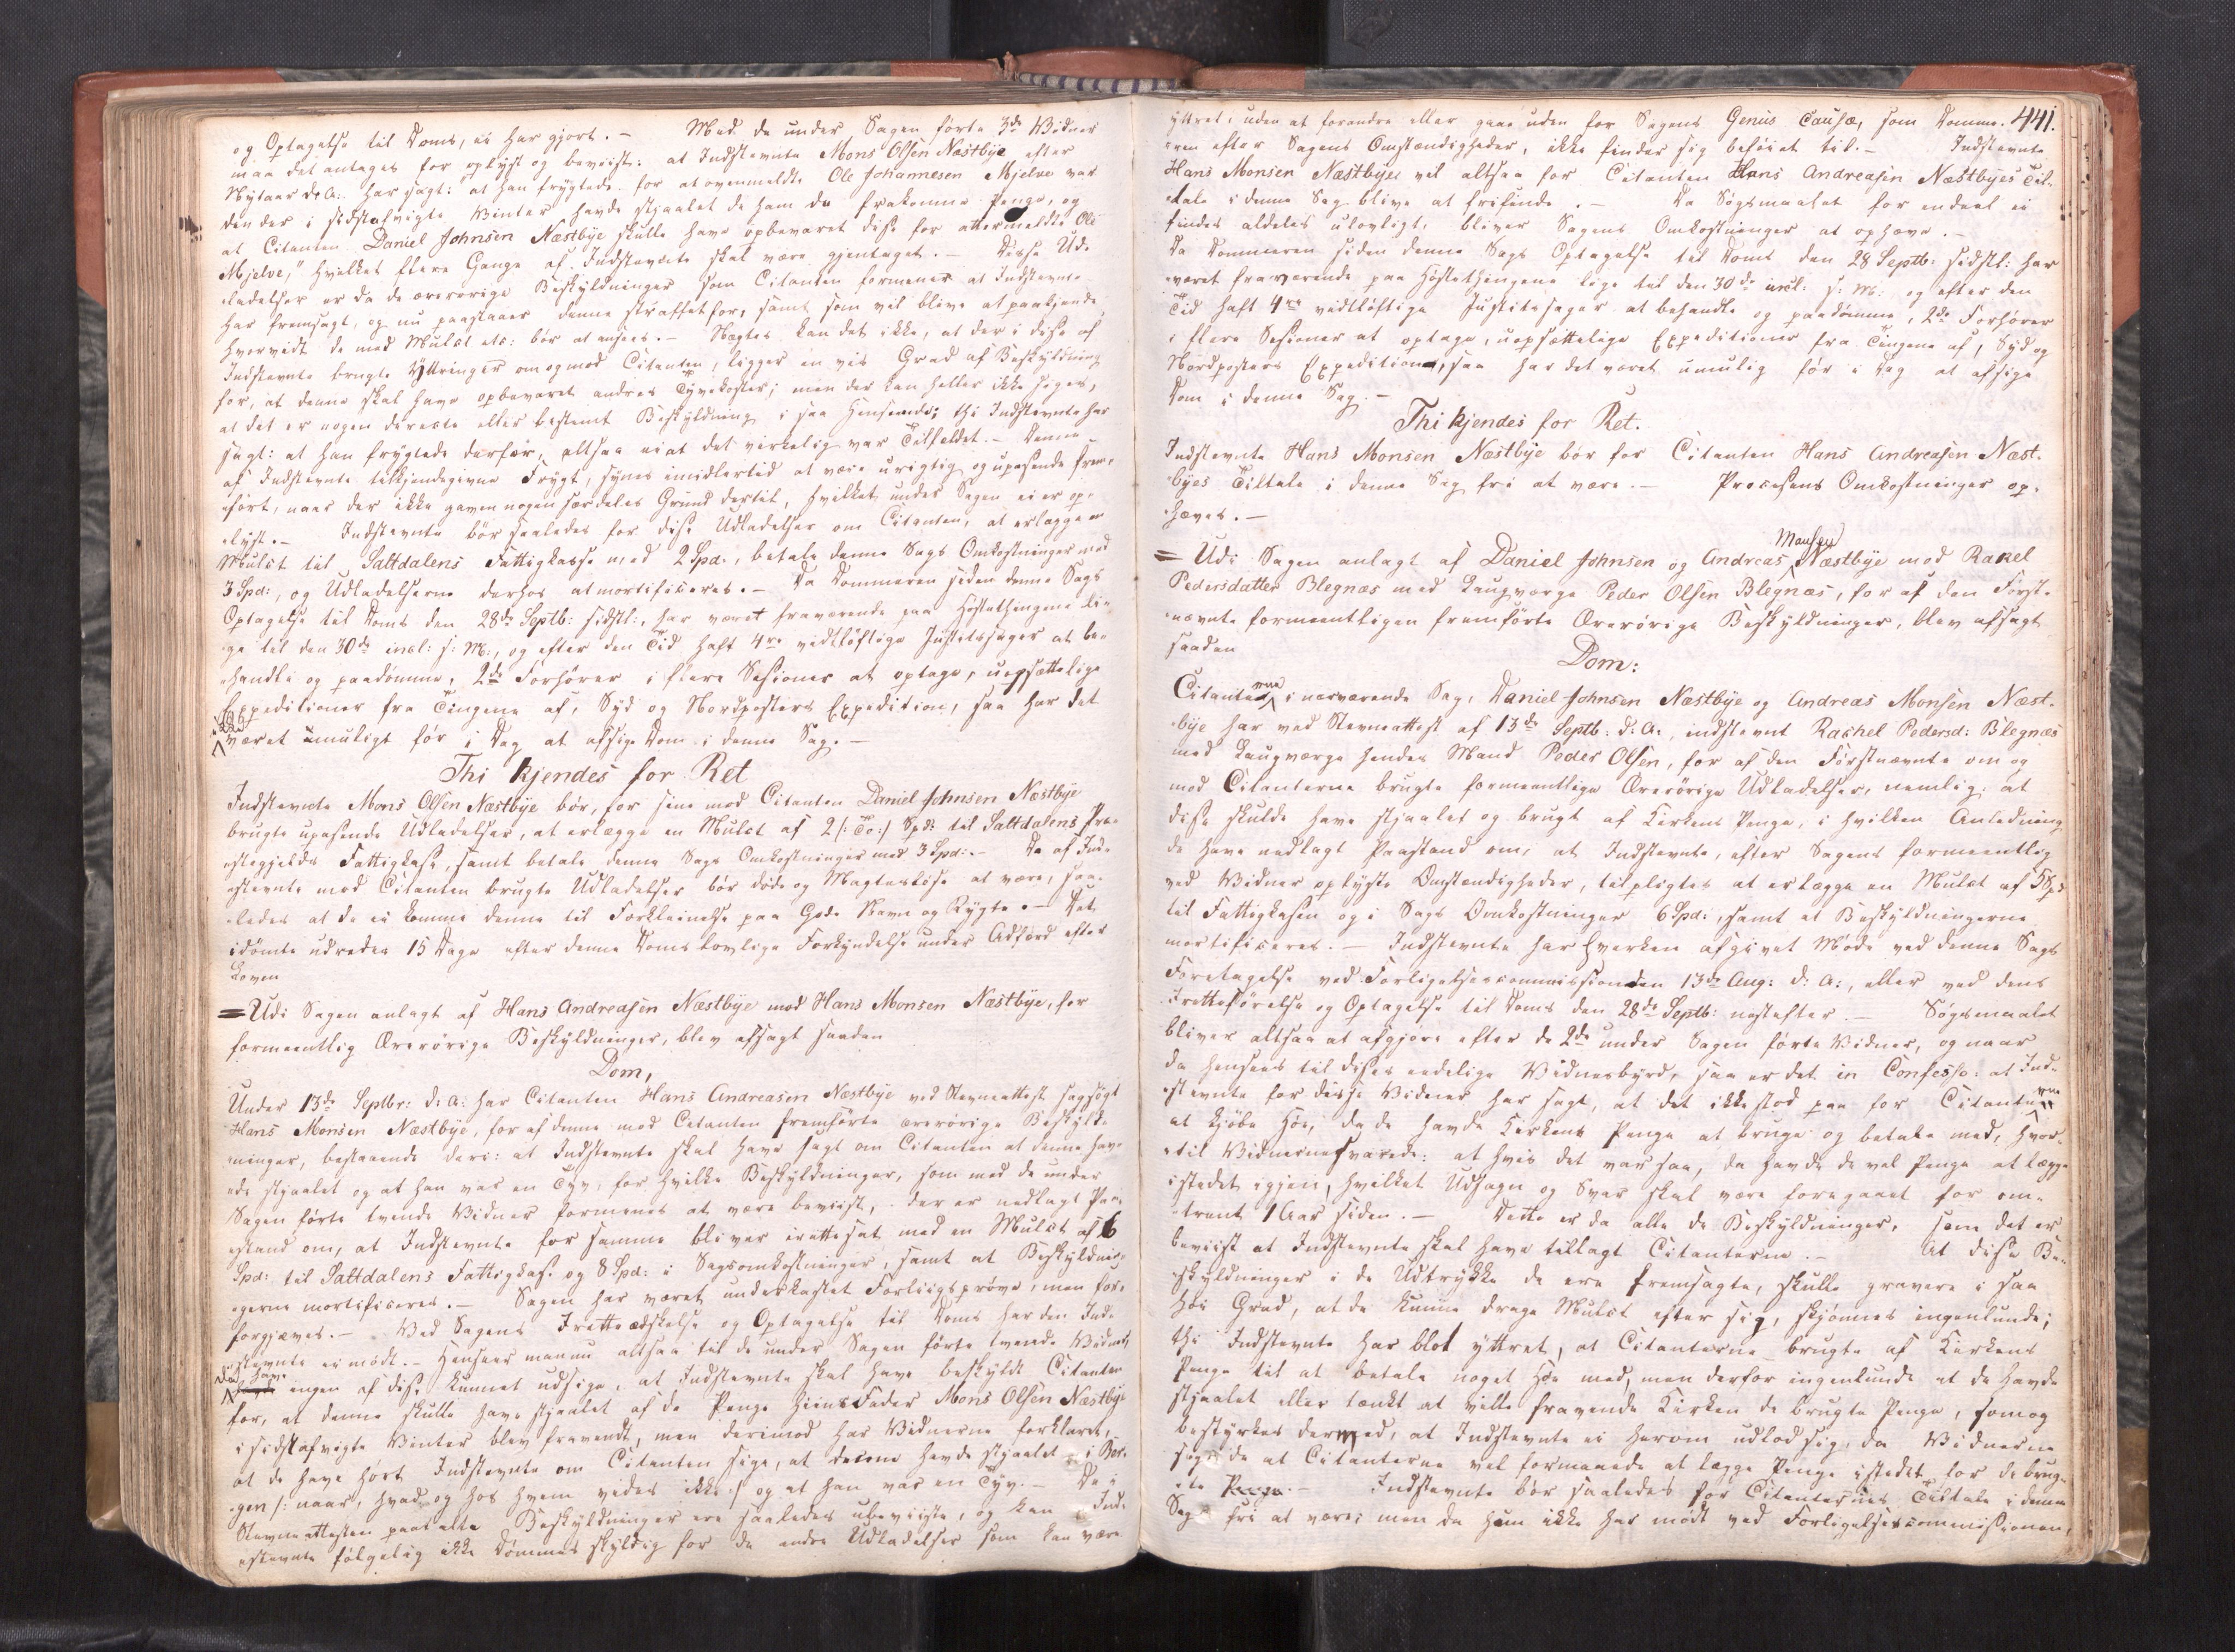 og Optagelse til Doms, ei har gjort. - Med de under Sagen førte 3de Vidner
maa det antages for oplyst og beviist: at Indstevnte Mons Olsen Næstbye efter
Nytaar d: A: har sagt: at han frygtede for at ovenmeldte Ole Johannesen Mjelve var
den der i sidstafvigte Vinter havde stjaalet de ham da frakomne Penge, og
at Citanten Daniel Johnsen Næstbye skulle have opbevaret disse for attermeldte Ole
Mjelve," hvilket flere Gange af Indstevnte skal være gjentaget. - Disse Ud-
ladelser er da de ærerørige Beskyldninger som Citanten formener at Indstevnte
har fremsagt, og nu paastaaer denne straffet for, samt som vil blive at paakjende,
hvorvidt de med Mulct etc: bør at ansees. - Nægtes kan det ikke, at der i disse af
Indstevnte brugte Yttringer om og mod Citanten, ligger en vis Grad af Beskyldning
for, at denne skal have opbevaret andres Tyvekoster; men der kan heller ikke siges,
at det er nogen directe eller bestemt Beskyldning i saa Henseende; thi Indstevnte har
sagt: at han frygtede derfor, altsaa ei at det virkelig var Tilfældet. - Denne
af Indstevnte tilkjendegivne Frygt, synes imidlertid at være urigtig og upassende frem-
ført, naar der ikke gaves nogen særdeles Grund dertil, hvilket under Sagen ei er op-
lyst. - Indstevnte bør saaledes for disse Udladelser om Citanten, at erlægge en
Mulct til Saltdalens Fattigkasse med 2 Spd:, betale denne Sags Omkostninger med
3 Spd:, og Udladelserne derhos at mortificeres. - Da Dommeren siden denne Sags
Optagelse til Doms den 28de Septb: sidstl:, har været fraværende paa Høstethingene li-
ge til den 30de incl: s: M:, og efter den Tid haft 4re vidtløftige Justitssager at be-
handle og paadømme, 2de Forhører i flere Sessioner at optage, uopsættelige
Expeditioner fra Tingene af, Syd og Nordposters Expedition, saa har det
været umuligt før i Dag at afsige Dom i denne Sag. -
Thi kjendes for Ret
Indstevnte Mons Olsen Næstbye bør, for sine mod Citanten Daniel Johnsen Næstbye
brugte upassende Udladelser, at erlægge en Mulct af 2 /: To :/ Spd: til Saltdalens Præ-
stegjelds Fattigkasse, samt betale denne Sags Omkostninger med 3 Spd:. - De af Ind-
stevnte mod Citanten brugte Udladelser bør døde og Magtesløse at være, saa-
ledes at de ei komme denne til Forkleinelse paa Gode Navn og Rygte. - Det
idømte udredes 15 Dage efter denne Doms lovlige Forkyndelse under Adfærd efter
Loven
= Udi Sagen anlagt af Hans Andreasen Næstbye mod Hans Monsen Næstbye, for
formeentlig Ærerørige Beskyldninger, blev afsagt saadan
Dom,
Under 13de Septbr: d: A: har Citanten Hans Andreasen Næstbye ved Stevneattest sagsøgt
Hans Monsen Næstbye, for af denne mod Citanten fremførte ærerørige Beskyld-
ninger, bestaaende deri: at Indstevnte skal have sagt om Citanten at denne hav-
de stjaalet og at han var en Tyv, for hvilke Beskyldninger, som med de under
Sagen førte tvende Vidner formenes at være beviist, der er nedlagt Paa-
stand om, at Indstevnte for samme bliver irettesat med en Mulct af 6
Spd: til Saltdalens Fattigkasse og 8 Spd: i Sagsomkostninger, samt at Beskyldnin-
gerne mortificeres. - Sagen har været underkastet Forliigsprøve, men for-
forgjæves. - Ved Sagens Iretteædskelse og Optagelse til Doms har den Ind-
stevnte ei mødt. - Henseer man nu altsaa til de under Sagen førte tvende Vidner,
da have ingen af disse kunnet udsige, at Indstevnte skal have beskyldt Citanten
for, at denne skulle have stjaalet af de Penge hiins Fader Mons Olsen Næstbye
i sidstafvigte Vinter blev fravendt, men derimod har Vidnerne forklaret,
at de have hørt Indstevnte om Citanten sige, at denne havde stjaalet i Ber-
gen /: naar, hvad og hos hvem vides ikke :/ og at han var en Tyv. - De i
Stevneattesten paatalte Beskyldninger ere saaledes ubeviiste, og kan Ind-
stevnte følgelig ikke dømmes skyldig for de andre Udladelser som kan være
441.
yttret, uden at forandre eller gaae uden for Sagens Genus Causæ, som Domme-
ren efter Sagens Omstændigheder, ikke finder sig beføiet til. - Indstevnte
Hans Monsen Næstbye vil altsaa for Citanten Hans Andreasen Næstbyes Til-
tale i denne Sag blive at frifinde. - Da Søgsmaalet for endeel ei
findes aldeles ulovligt, bliver Sagens Omkostninger at ophæve. -
Da Dommeren siden denne Sags Optagelse til Doms den 28 Septb: sidstl: har
været fraværende paa Høstethingene lige til den 30de incl: s: M: og efter den
Tid haft 4re vidtløftige Justitssager at behandle og paadømme, 2de Forhører
i flere Sessioner at optage, uopsættelige Expeditioner fra Tingene af, Syd og
Nordposters Expedition, saa har det været umulig før i Dag at afsige
Dom i denne Sag. -
Thi kjendes for Ret.
Indstevnte Hans Monsen Næstbye bør for Citanten Hans Andreasen Næst-
byes Tiltale i denne Sag fri at være. - Processens Omkostninger op-
hæves. -
Monsen
= Udi Sagen anlagt af Daniel Johnsen og Andreas Næstbye mod Rakel
Pedersdatter Blegnæs med Laugværge Peder Olsen Blegnæs, for af den Først-
nævnte formeentligen fremførte Ærerørige Beskyldninger, blev afsagt
saadan
Dom:
Citanterne i nærværende Sag, Daniel Johnsen Næstbye og Andreas Monsen Næst-
bye har ved Stevneattest af 13de Septb: d: A:, indstevnt Rachel Pedersd: Blegnæs
med Laugværge hendes Mand Peder Olsen, for af den Førstnævnte om og
mod Citanterne brugte formeentlige Ærerørige Udladelser, nemlig: at
disse skulde have stjaalet og brugt af Kirkens Penge, i hvilken Anledning
de have nedlagt Paastand om, at Indstevnte, efter Sagens formeentlig
ved Vidner oplyste Omstændigheder, tilpligtes at erlægge en Mulct af 5 Spd
til Fattigkassen og i Sags Omkostninger 6 Spd:, samt at Beskyldningerne
mortificeres. - Indstevnte har hverken afgivet Møde ved denne Sags
Foretagelse ved Forligelsescommissionen den 13de Aug: d: A:, eller ved dens
Iretteførelse og Optagelse til Doms den 28de Septb: næstefter. - Søgsmaalet
bliver altsaa at afgjøre efter de 2de under Sagen førte Vidner, og naar
da hensees til disses eedelige Vidnesbyrd, saa er det in Confesso: at Ind-
stevnte for disse Vidner har sagt, at det ikke stod paa for Citanterne
at kjøbe Høe, da de havde Kirkens Penge at bruge og betale med, hvor-
til Vidnerne svarede: at hvis det var saa, da havde de vel Penge at lægge
istedet igjen, hvilket Udsagn og Svar skal være foregaaet for om-
trent 1 Aar siden. - Dette er da alle de Beskyldninger, som det er
beviist at Indstevnte skal have tillagt Citanterne. - At disse Be-
skyldninger i de Udtrykke de ere fremsagte, skulle gravere i saa
høi Grad, at de kunne drage Mulct efter sig, skjønnes ingenlunde;
thi Indstevnte har blot yttret, at Citanterne brugte af Kirkens
Penge til at betale noget Høe med, men derfor ingenlunde at de havde
stjaalet eller tænkt at ville fravende Kirken de brugte Penge, som og
bestyrkes dermed, at Indstevnte ei herom udlod sig, da Vidnerne
sagde at Citanterne vel formaaede at lægge Penge istedet for de brug-
te Penge. - Indstevnte bør saaledes for Citanternes Tiltale i denne
Sag fri at være; men da hun ikke har mødt ved Forligelsescommissionen,